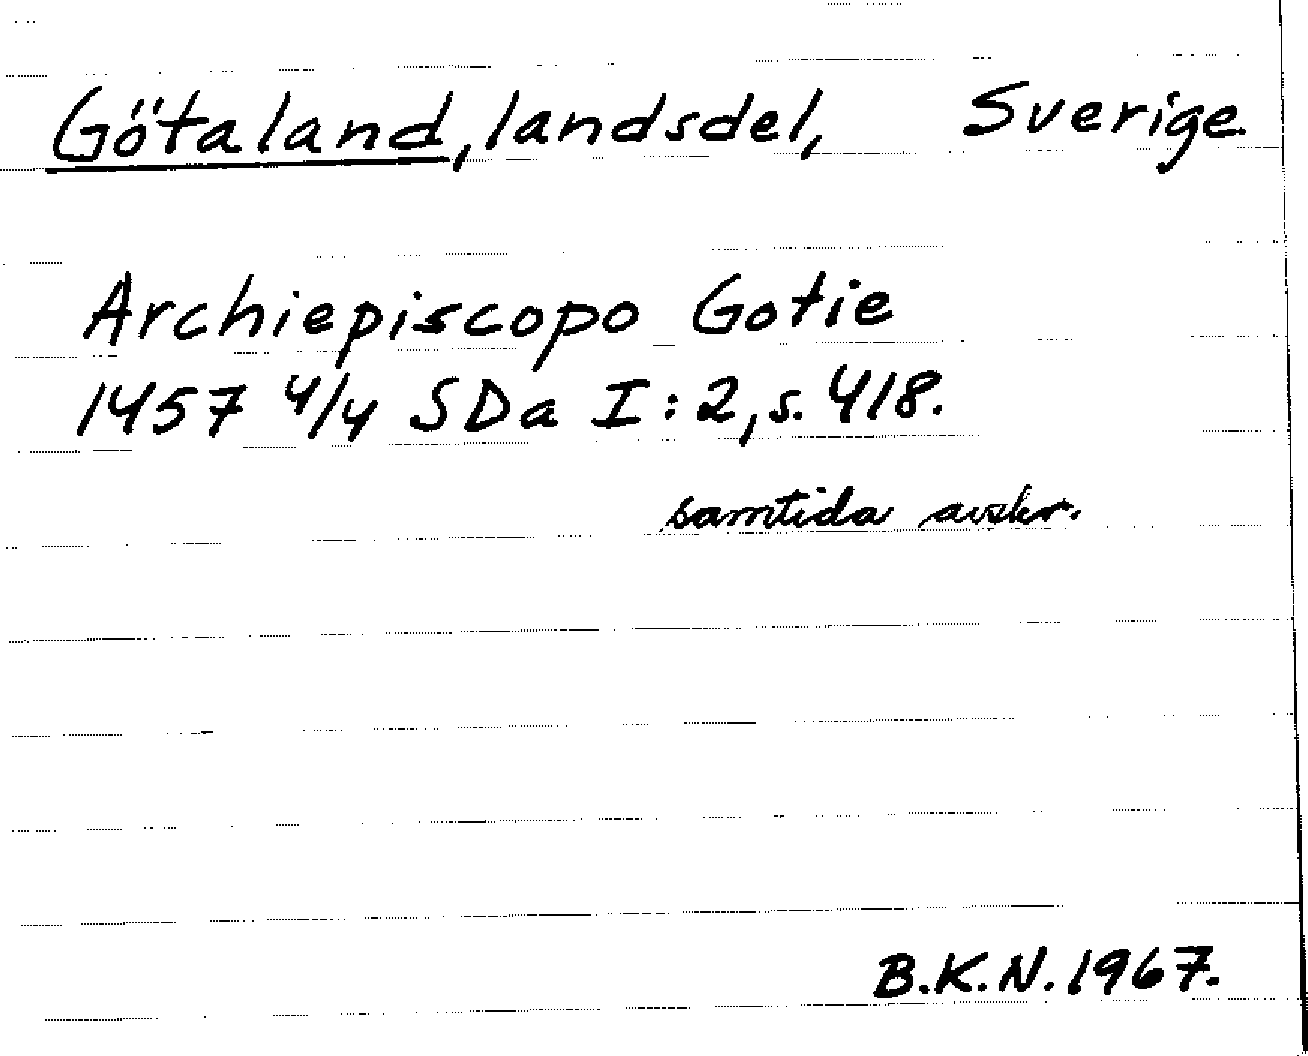 Götaland, landsdel, Sverige.
Archiepiscopo Gotie
1457 4/4 SDa I:2, s. 418.
samtida avskr.
B.K.N. 1967.